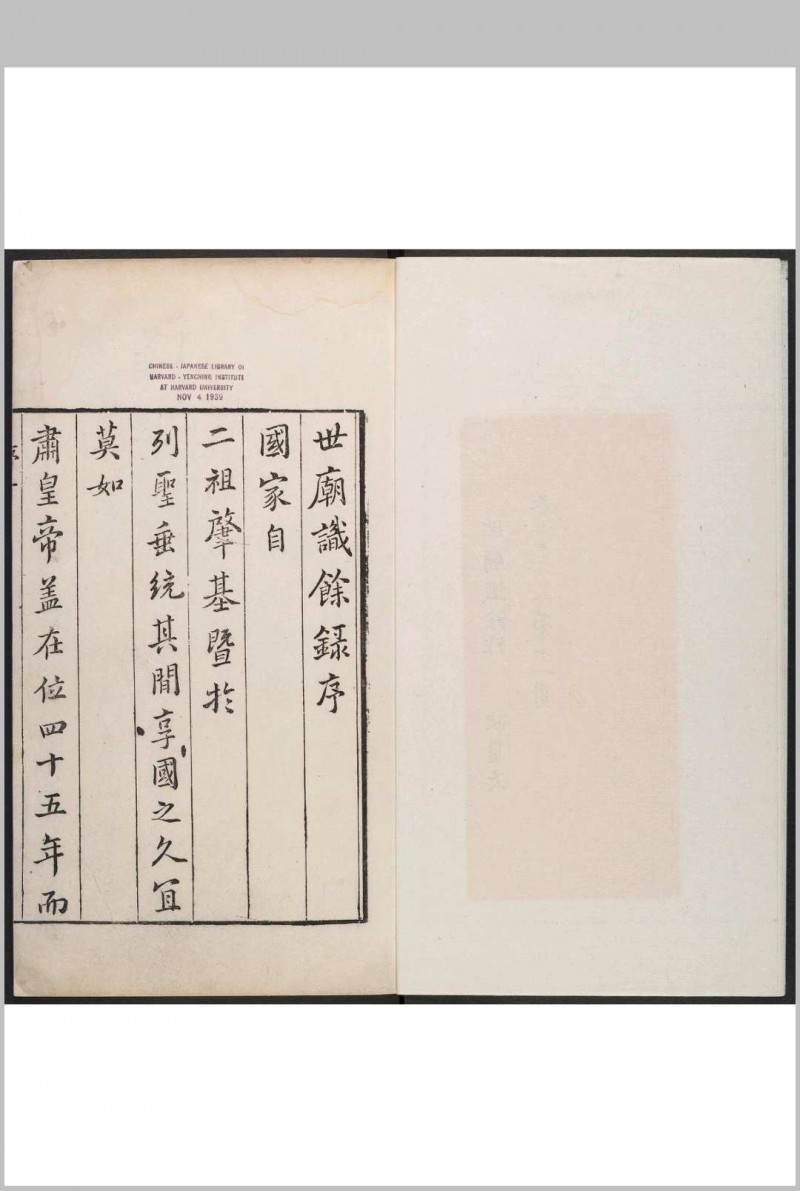 CHINESE - JAPANESE LIBRARY OF
HARVARD - YENCHING INSTITUTE
AT HARVARD UNIVERSITY
NOV 4 1939
世廟識餘錄序
國家自
二祖肇基暨於
列聖垂統其間享國之久宜
莫如
肅皇帝盖在位四十五年而